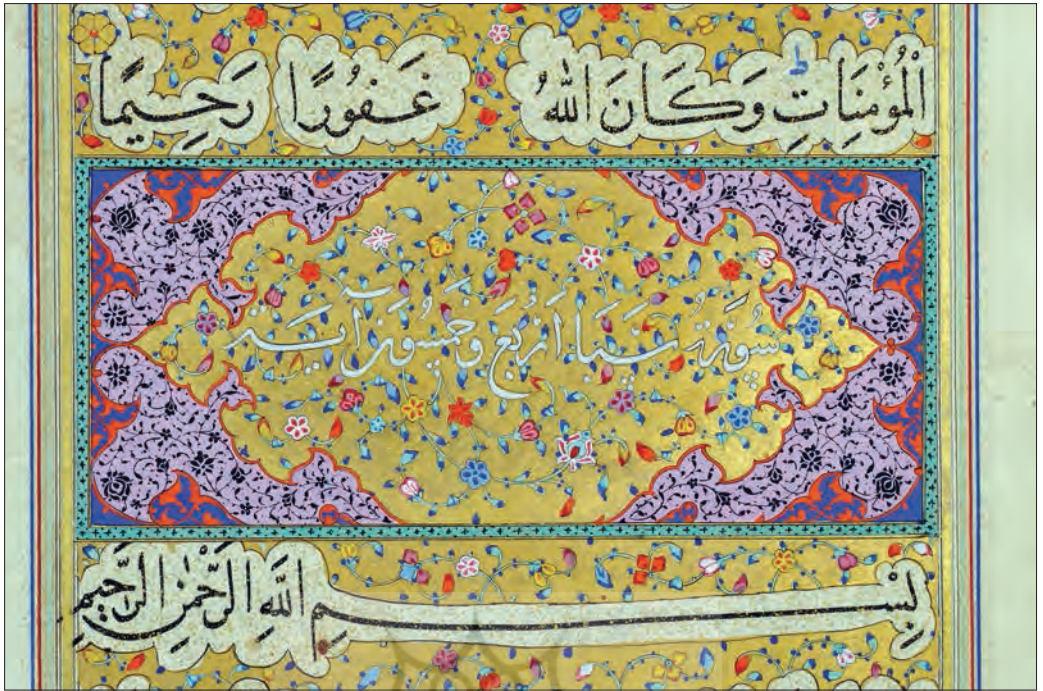 الْمُؤْمِنَاتِ ؕ وَكَانَ اللهُ غَفُورًا رَحِيمًا
سُورَةُ سَبَا اَرْبَعَ وَخَمْسُونَ آيَة
بِسْمِ اللَّهِ الرَّحْمٰنِ الرَّحِيمِ